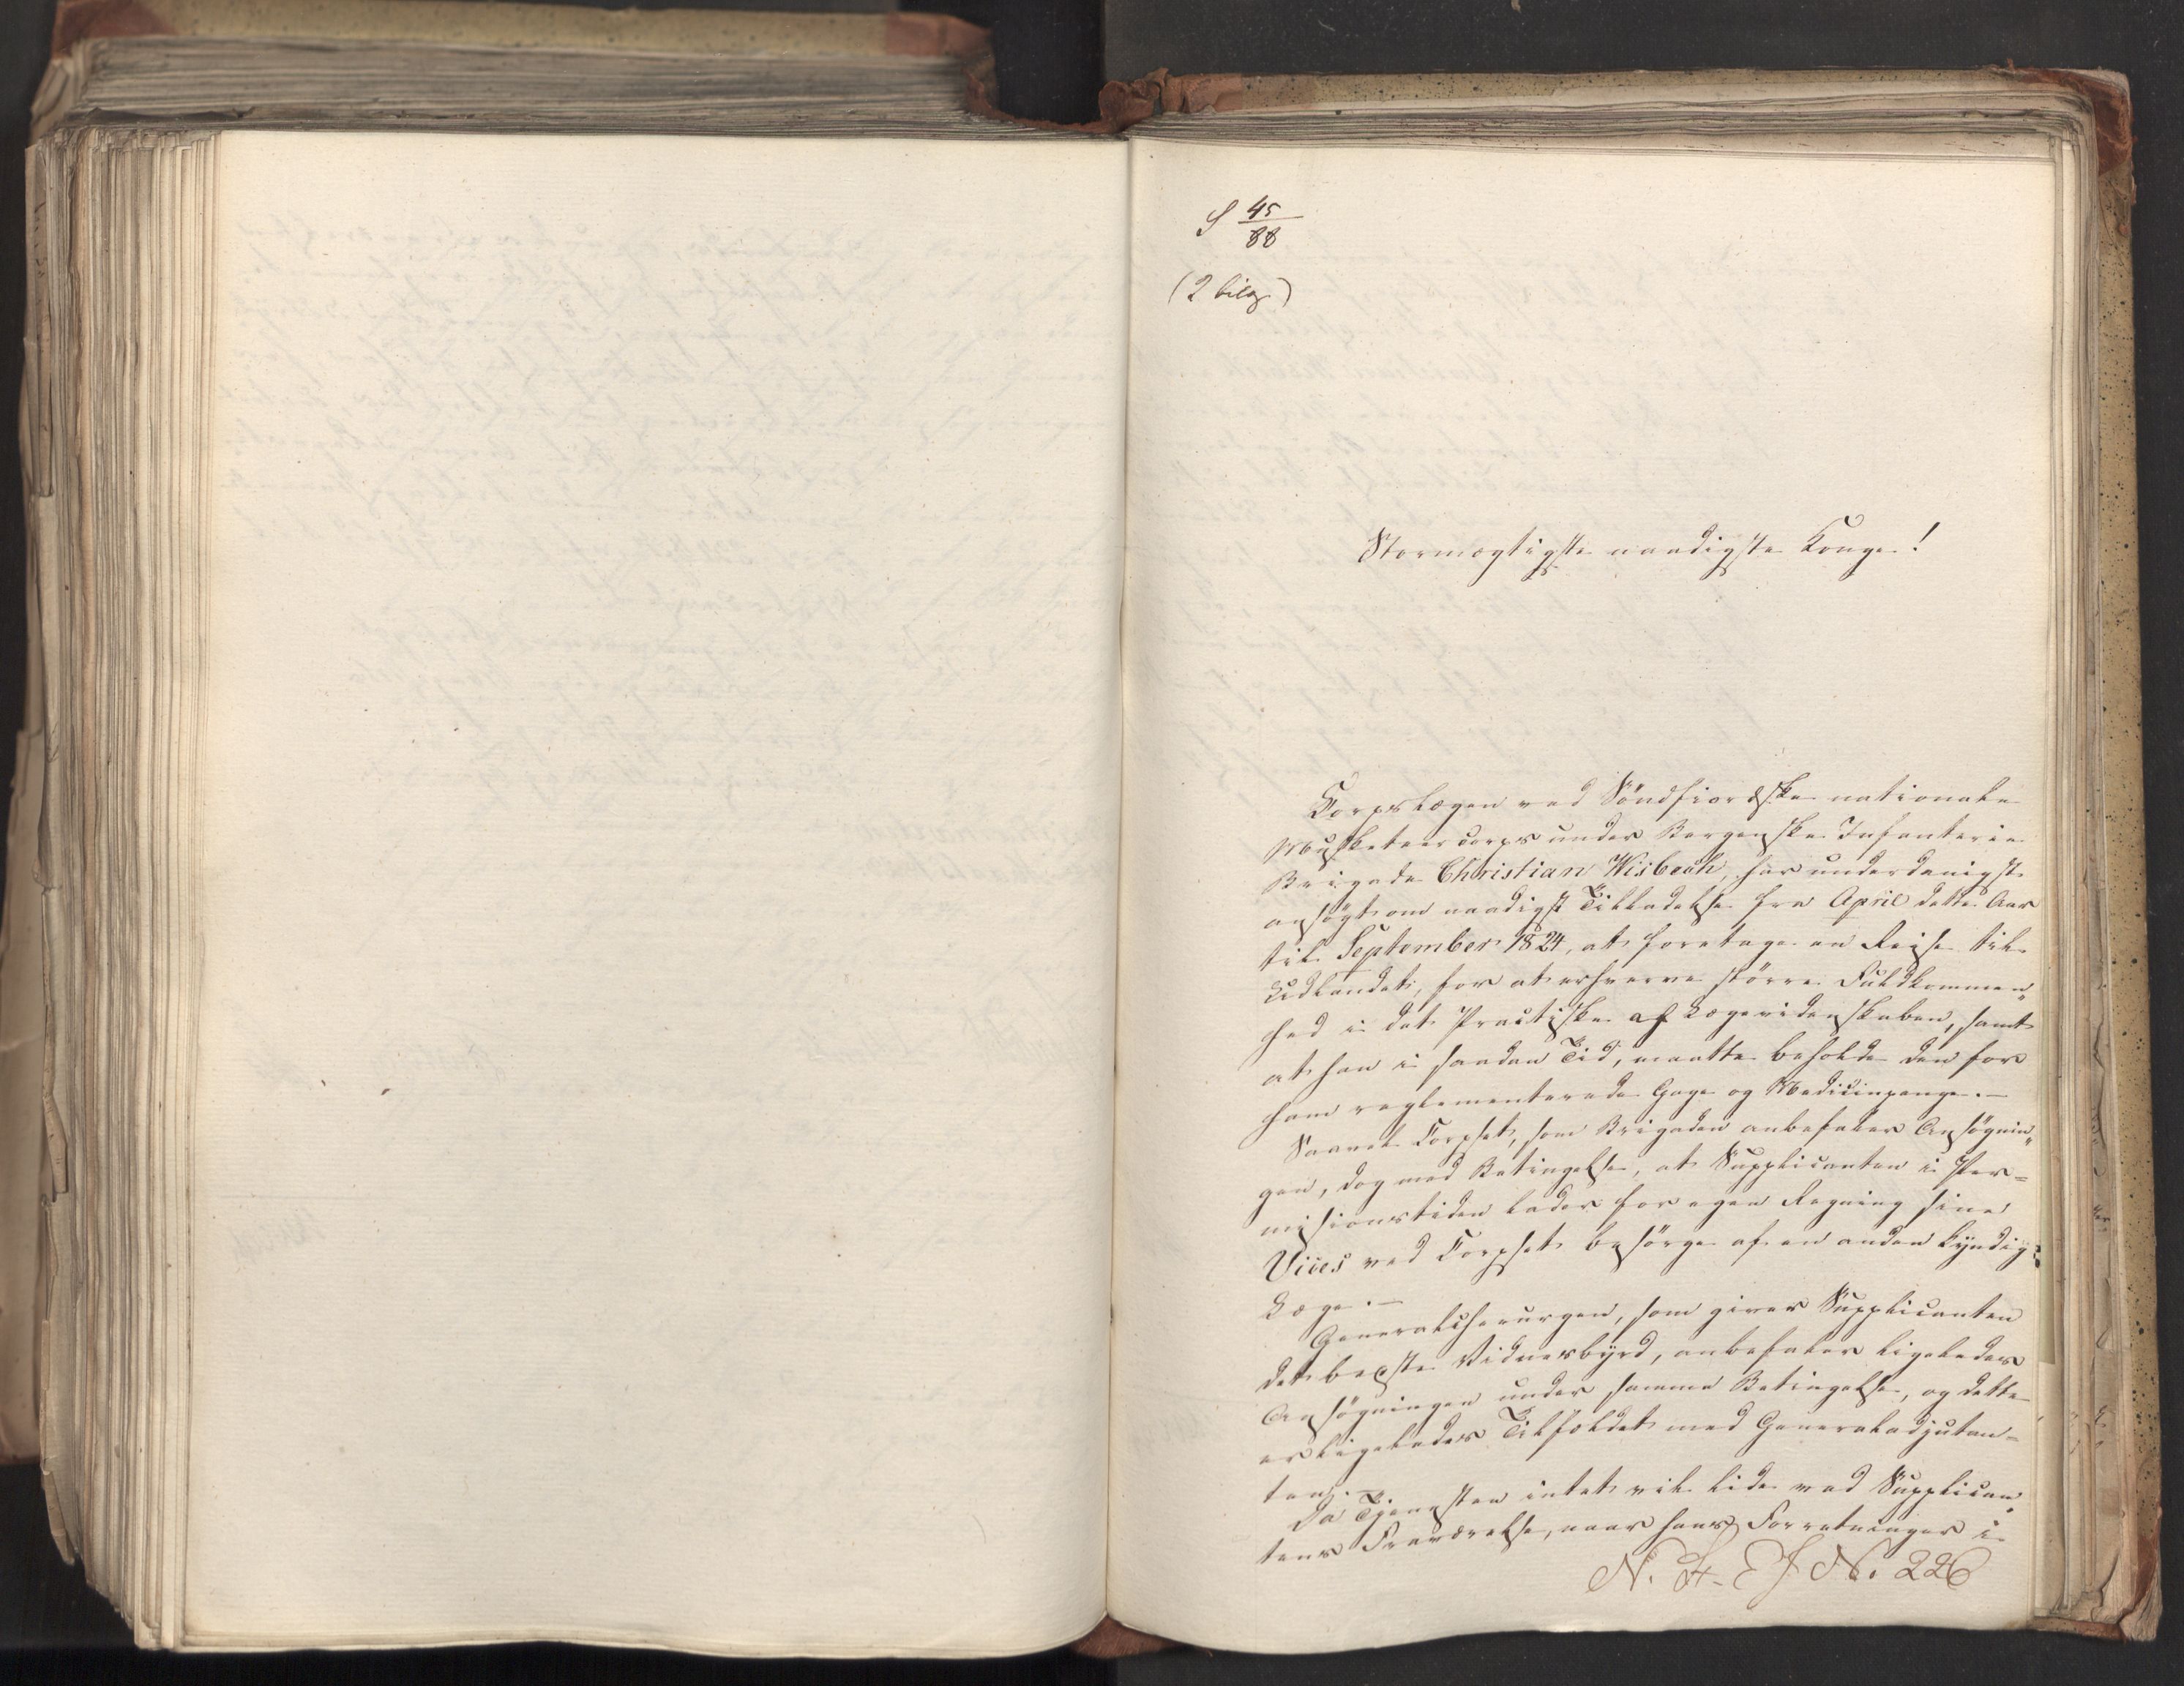 S 45/88
(2 bilag)
Stormægtigste naadigste Konge!
Corpslægen ved Söndfiordske nationale
Musketeercorps under Bergenske Infanterie
Brigade Christian Wisbech, har underdanigst
ansögt om naadigst Tilladelse fra April dette Aar
til September 1824, at foretage en Reise til
Udlandet, for at erhverve större Fuldkommen„
hed i det Practiske af Lægevidenskaben, samt
at han i saadan Tid, maatte beholde den for
ham reglementerede Gage og Medicinpenge.—
Saavel Corpset, som Brigaden anbefaler Ansögnin„
gen, dog med Betingelse, at Supplicanten i Per=
misionstiden lader for egen Regning sine
Vices ved Corpset besörge af en anden kyndig
Læge.—
Generalchirurgen, som giver Supplicanten
det bedste Vidnesbyrd, anbefaler ligeledes
Ansögningen under samme Betingelse, og dette
er ligeledes Tilfældet med Generaladjutan=
ten.—
Da Tjenesten intet vil lide ved Supplican„
tens Fraværelse, naar hans Forretninger i
N. 226